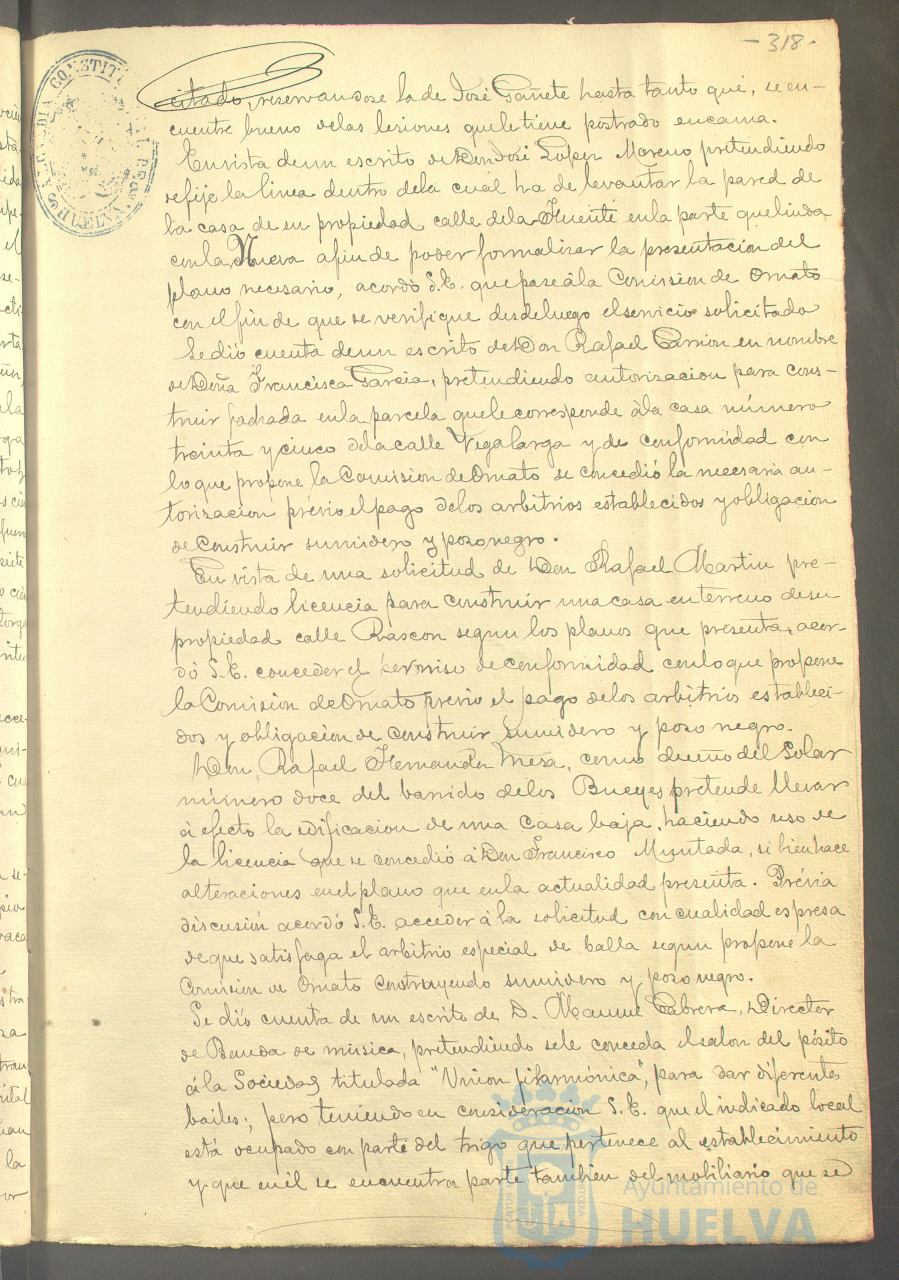 -318-
citado, reservandose la de José Gañete hasta tanto que, se en-
cuentre bueno delas lesiones quele tiene postrado encama.
En vista deun escrito de Don José Lopez Moreno pretendiendo
se fije la linea dentro dela cual ha de levantar la pared de
la casa de su propiedad calle dela Fuente enla parte quelinda
conla Nueva afin de poder formalizar la presentacion del
plano necesario, acordó S.E. que pase á la Comision de Ornato
con el fin de que se verifique desdeluego el servicio solicitado
Se dió cuenta deun escrito de Don Rafael Carrion en nombre
de Doña Francisca Garcia, pretendiendo autorizacion para cons-
truir fachada enla parcela quele corresponde á la casa número
treinta y cinco dela calle Vega larga y de conformidad con
lo que propone la Comision de Ornato se concedió la necesaria au-
torizacion prévio el pago delos arbitrios establecidos y obligacion
de construir sumidero y pozo negro.
En vista de una solicitud de Don Rafael Martin pre-
tendiendo licencia para construir una casa en terreno desu
propiedad calle Rascon segun los planos que presenta, acor-
dó S.E. conceder el permiso de conformidad con lo que propone
la Comision de Ornato prévio el pago delos arbitrios estableci-
dos y obligacion de construir sumidero y pozo negro.
Don Rafael Hernandez Mesa, como dueño del Solar
número doce del barrido delos Bueyes pretende llevar
á efecto la edificacion de una casa baja, haciendo uso de
la licencia que se concedió á Don Francisco Muntada, si bien hace
alteraciones enel plano que enla actualidad presenta. Prévia
discusión acordó S.E. acceder á la solicitud con cualidad espresa
de que satisfaga el arbitrio especial de balla segun propone la
Comision de Ornato contruyendo sumidero y pozo negro.
Se dió cuenta de un escrito de D. Manuel Cabrera, Director
de Banda de música, pretendiendo sele conceda el salon del pósito
á la Sociedad titulada "Union filarmónica", para dar diferentes
bailes; pero teniendo en consideracion S.E. que el indicado local
está ocupado en parte del trigo que pertenece al establecimiento
y que en él se encuentra parte tambien del mobiliario que se
HUELVA
Ayuntamiento de
HUELVA